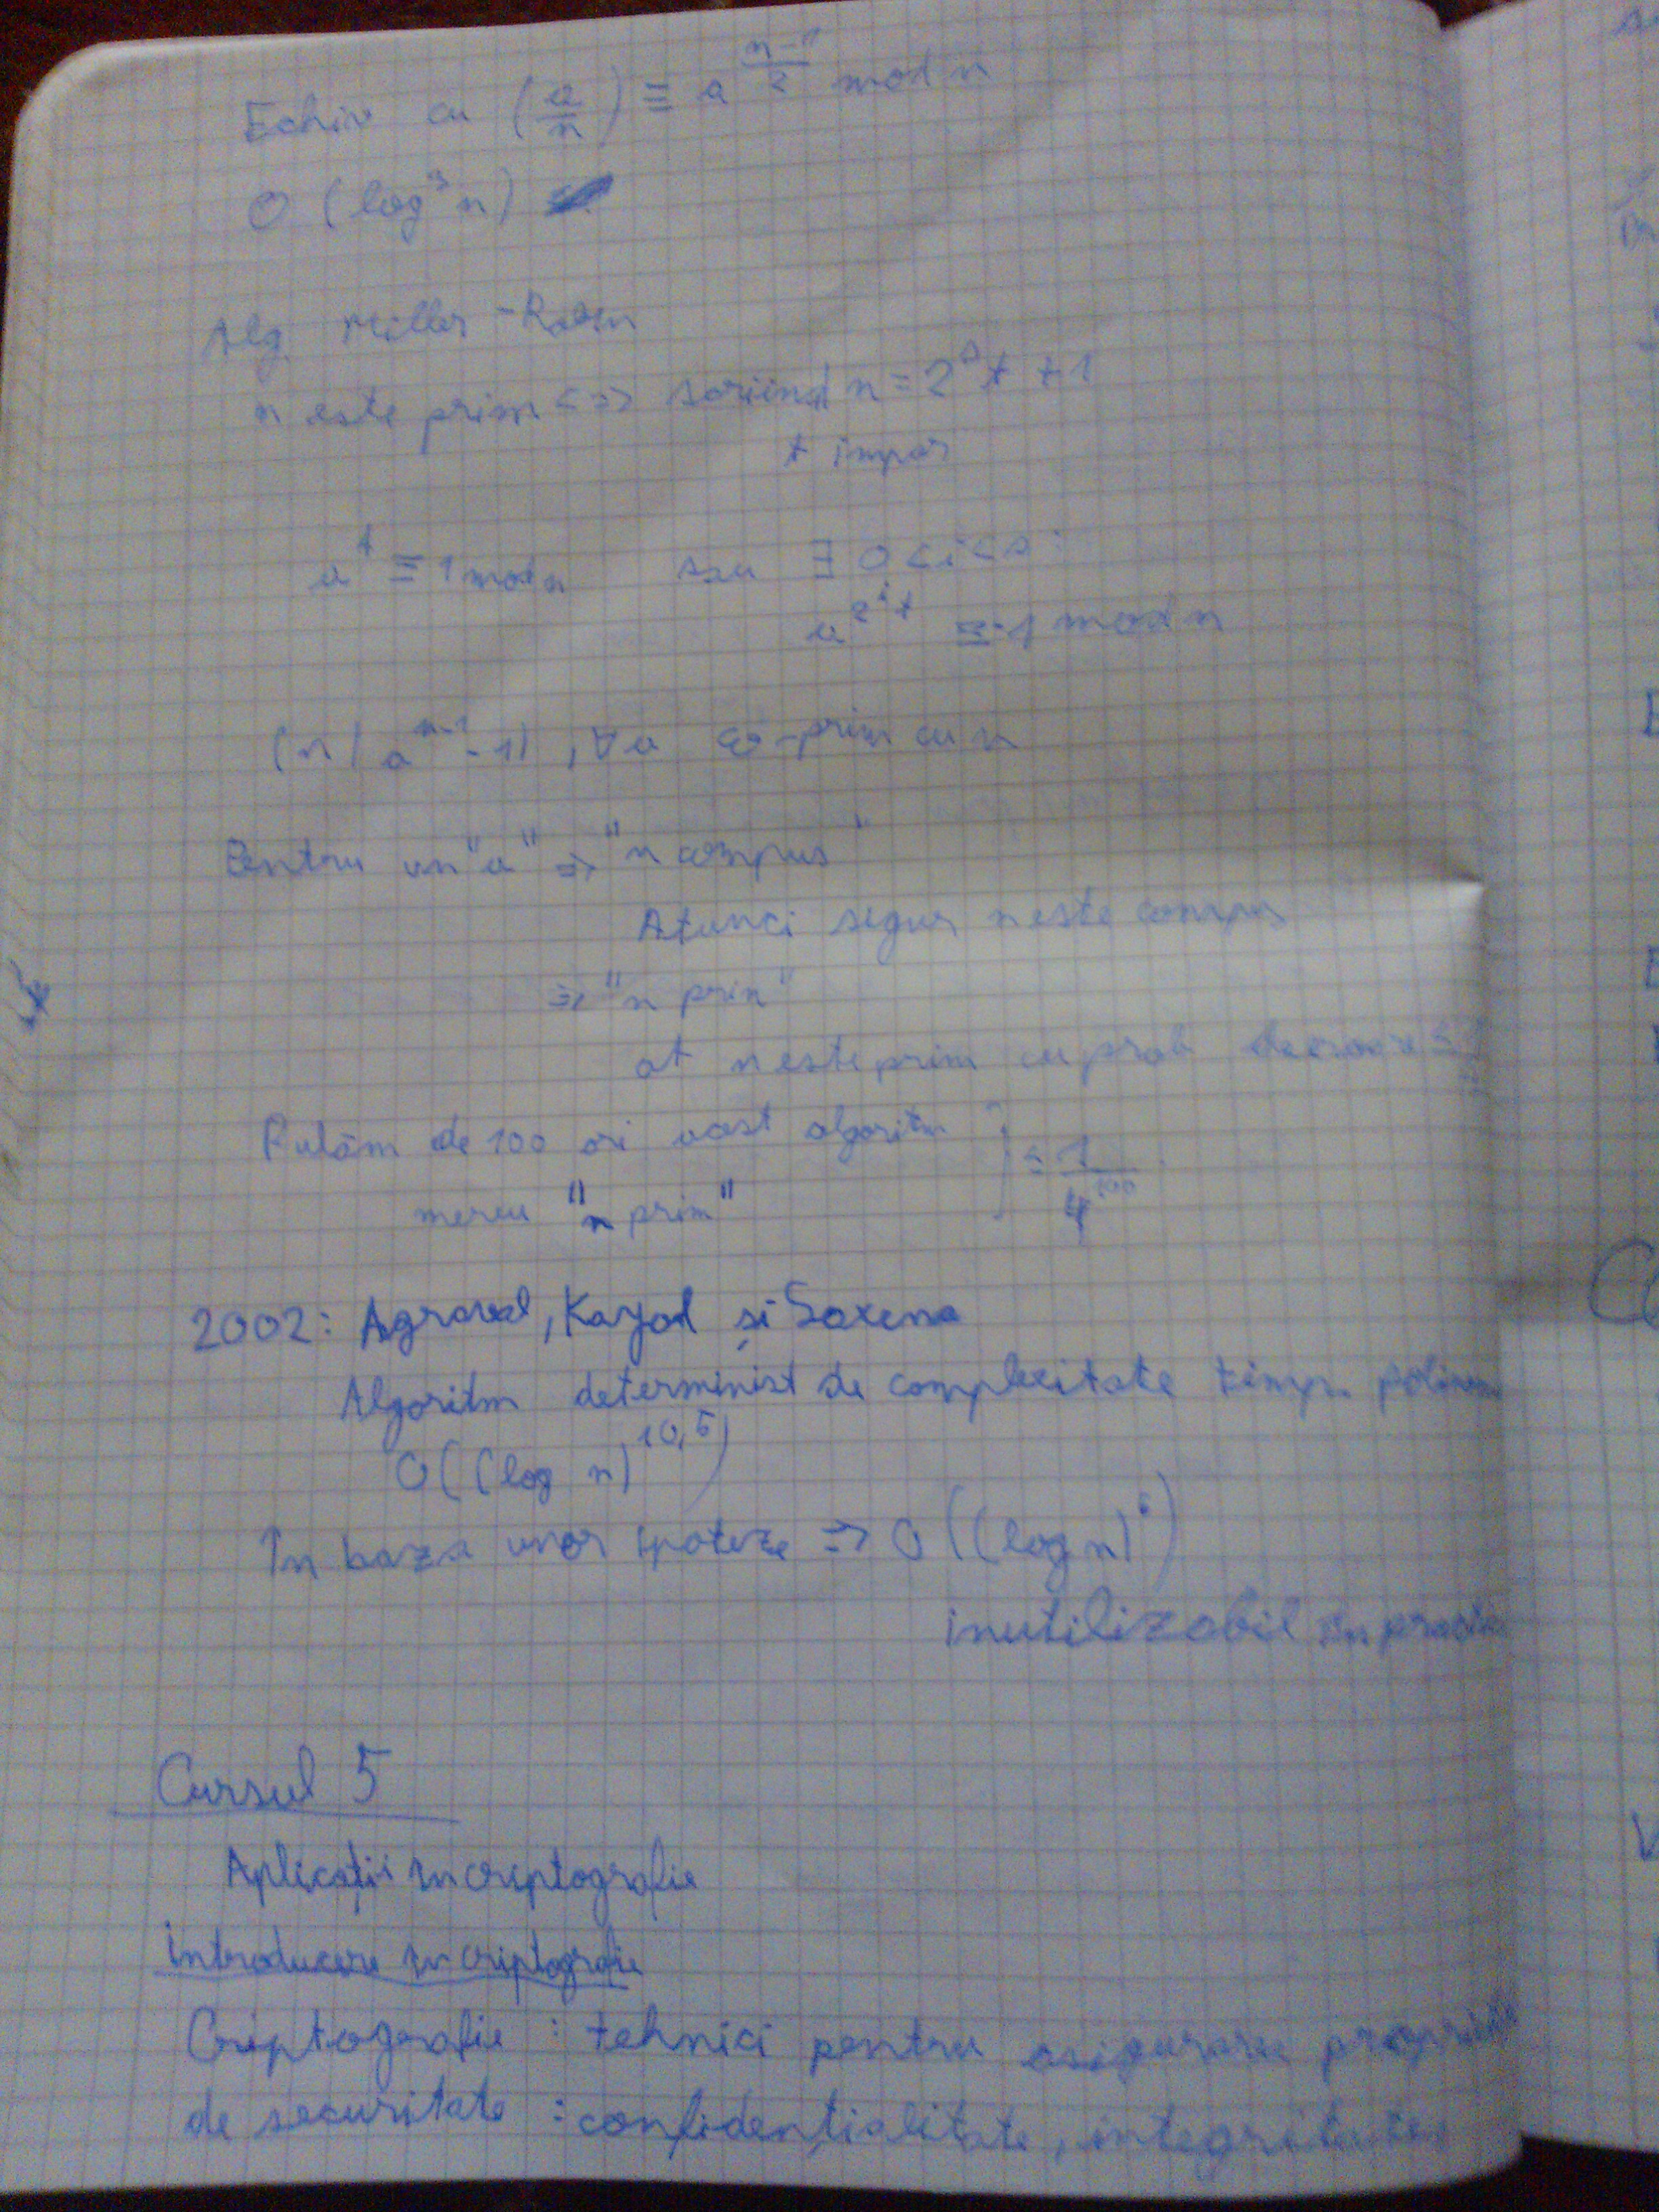 Echiv cu (a/n) ≡ a^((n-1)/2) mod n
O (log³ n)
Alg. Miller-Rabin
n este prim <=> scriind n = 2^s t + 1
t impar
a^t ≡ 1 mod n sau ∃ 0<i<s:
a^(2^i t) ≡ -1 mod n
(n | a^(n-1) - 1), ∀ a co-prim cu n
Pentru un "a" => "n compus"
Atunci sigur n este compus
=> "n prim"
at n este prim cu prob de eroare ≤
Rulăm de 100 ori acest algoritm
mereu "n prim" } ≤ 1/4^100
2002: Agrawal, Kayal și Saxena
Algoritm determinist de complexitate timp polinom
O((log n)^10,5)
În baza unor ipoteze => O((log n)^6)
inutilizabil în practic
Cursul 5
Aplicații în criptografie
Introducere în criptografie
Criptografie : tehnici pentru asigurarea
de securitate : confidențialitate, integritate,